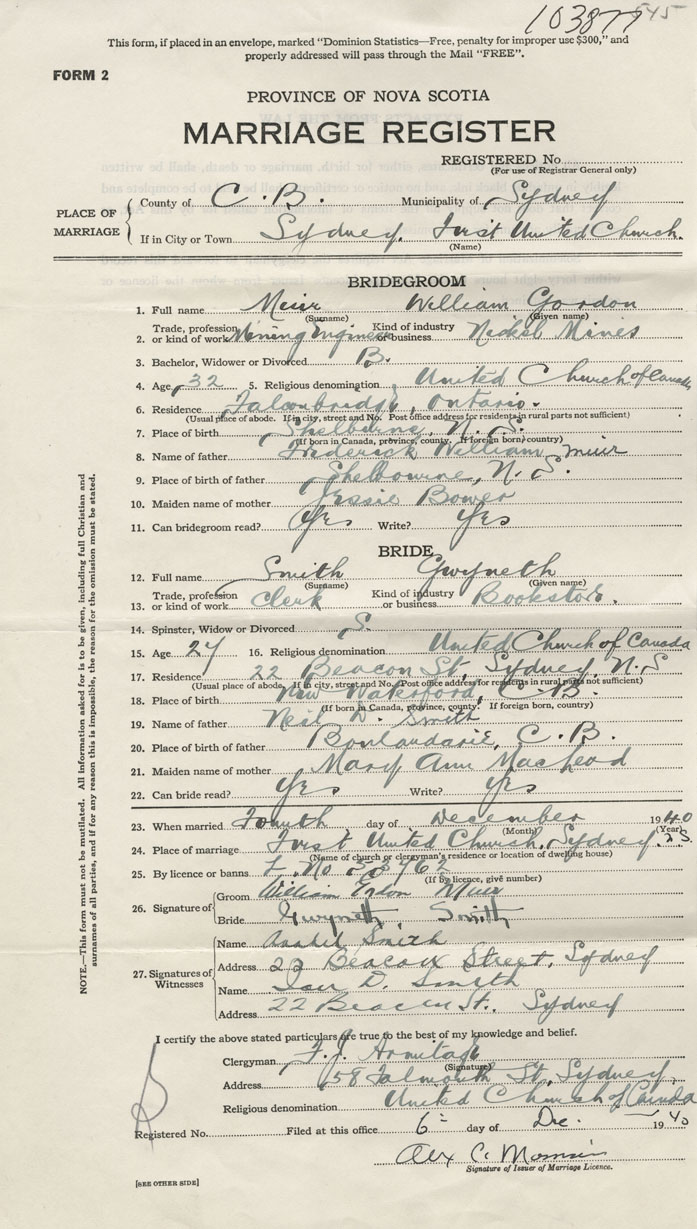 103877 545
This form, if placed in an envelope, marked "Dominion Statistics—Free, penalty for improper use $300," and
properly addressed will pass through the Mail "FREE".
FORM 2
PROVINCE OF NOVA SCOTIA
MARRIAGE REGISTER
REGISTERED No.
(For use of Registrar General only)
PLACE OF MARRIAGE
County of C. B. Municipality of Sydney
If in City or Town Sydney. First United Church.
(Name)
BRIDEGROOM
1. Full name Muir William Gordon
(Surname) (Given name)
2. Trade, profession or kind of work Mining Engineer Kind of industry or business Nickel Mines
3. Bachelor, Widower or Divorced B.
4. Age 32 5. Religious denomination United Church of Canada
6. Residence Falconbridge, Ontario.
(Usual place of abode. If in city, street and No. Post office address for residents in rural parts not sufficient)
7. Place of birth Shelburne, N. S.
(If born in Canada, province, county. If foreign born, country)
8. Name of father Frederick William Muir
9. Place of birth of father Shelbourne, N. S.
10. Maiden name of mother Jessie Bower
11. Can bridegroom read? Yes Write? Yes
BRIDE
12. Full name Smith Gwyneth
(Surname) (Given name)
13. Trade, profession or kind of work Clerk Kind of industry or business Bookstore.
14. Spinster, Widow or Divorced S.
15. Age 27 16. Religious denomination United Church of Canada
17. Residence 22 Beacon St. Sydney, N. S
(Usual place of abode. If in city, street and No. Post office address for residents in rural parts not sufficient)
18. Place of birth New Waterford, C. B.
(If born in Canada, province, county. If foreign born, country)
19. Name of father Neil D. Smith
20. Place of birth of father Boulardarie, C. B.
21. Maiden name of mother Mary Ann MacLeod
22. Can bride read? Yes Write? Yes
23. When married Fourth day of December 1940
(Month) (Year)
24. Place of marriage First United Church, Sydney. N.S.
(Name of church or clergyman's residence or location of dwelling house)
25. By licence or banns L. No 53962
(If by licence, give number)
26. Signature of
Groom William Gordon Muir
Bride Gwyneth Smith
27. Signatures of Witnesses
Name Smith
Address 22 Beacon Street, Sydney
Name Ian D. Smith
Address 22 Beacon St., Sydney
I certify the above stated particulars are true to the best of my knowledge and belief.
Clergyman F. J. Armitage
(Signature)
Address 58 Falmouth St., Sydney,
Religious denomination United Church of Canada
Registered No. Filed at this office 6 day of Dec. 1940
Alex C.
Signature of Issuer of Marriage Licence.
[SEE OTHER SIDE]
NOTE.—This form must not be mutilated. All information asked for is to be given, including full Christian and
surnames of all parties, and if for any reason this is impossible, the reason for the omission must be stated.